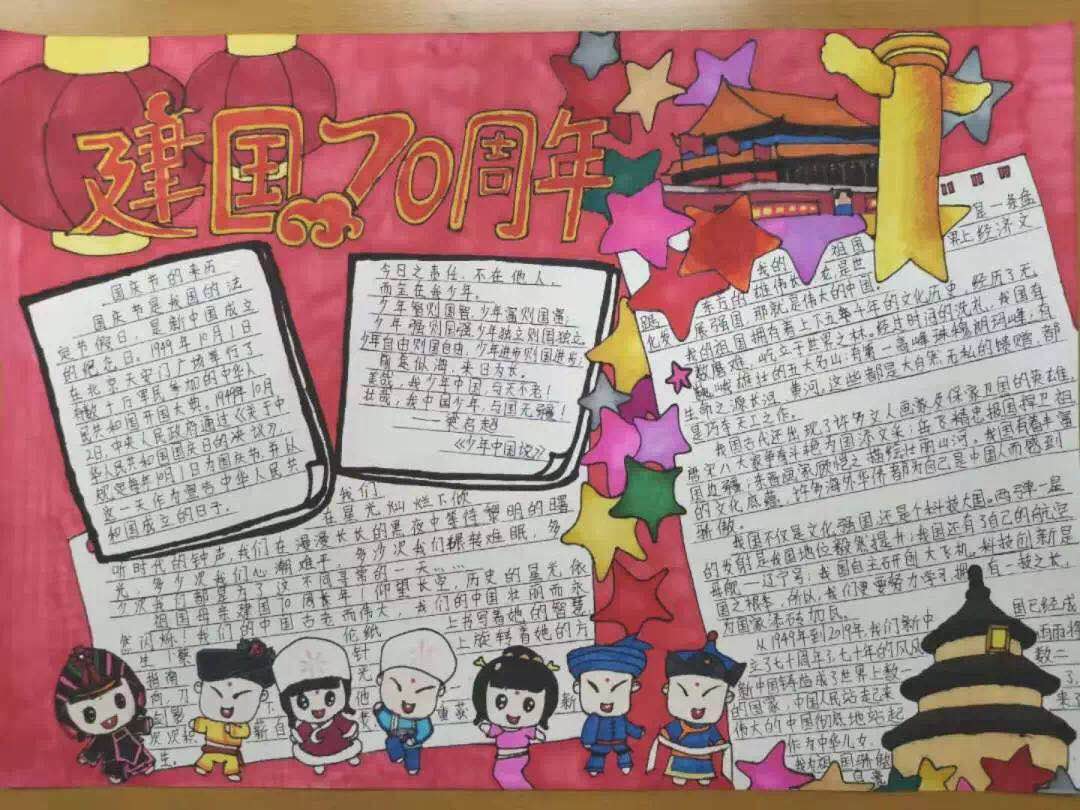 建国70周年
国庆节的来历
国庆节是我国的法
定节假日,是新中国成立
的纪念日。1949年10月1日
在北京天安门广场举行了
数十万军民参加的中华人
民共和国开国大典。1949年10月
2日,中央人民政府通过《关于中
华人民共和国国庆日的决议》,
规定每年10月1日为国庆节,并以
这一天作为宣告中华人民共
和国成立的日子。
今日之责任,不在他人,
而全在我少年。
少年智则国智,少年富则国富;
少年强则国强,少年独立则国独立,
少年自由则国自由,少年进步则国进步,
前途似海,来日方长。
美哉,我少年中国,与天不老!
壮哉,我中国少年,与国无疆!
——梁启超
《少年中国说》
我们
在星光灿烂下倾
听时代的钟声,我们在漫漫长长的黑夜中等待黎明的曙
光,多少次我们心潮难平,多少次我们辗转难眠,多
少次我们都是为了这不同寻常的一天……
祖国母亲建国70周年!仰望长空,历史的星光依
然闪烁!我们的中国古老而伟大,我们的中国壮丽而永
生
蔡
伦纸
上书写着她的智慧,
指南
针
上旋转着她的方
我的祖国
是一条盘
东方的雄伟长
老是世
界上经济文
化发
展强国,那就是伟大的中国
我的祖国拥有着上下五千年的文化历史,经历了无
数磨难,屹立于世界之林,经过时间的洗礼,我国有
巍峨雄壮的五大名山,有第一高峰珠穆朗玛峰,有
生命之源长江、黄河,这些都是大自然无私的馈赠,都
是巧夺天工之作。
我国古代还出现了许多文人画家及保家卫国的英雄,
唐宋八大家争奇斗艳为国添文采;岳飞精忠报国捍卫祖
国边疆;东晋画家顾恺之描绘壮丽山河,我国有着丰富
的文化底蕴,许多海外华侨都为自己是中国人而感到
骄傲。
我国不仅是文化强国,还是个科技大国。两弹一星
的发射是我国地位毅然提升;我国还有了自己的航空
母舰——辽宁号;我国自主研创大飞机。科技创新是
国之根本,所以,我们更要努力学习,拥有一技之长,
为国家添砖加瓦。
从1949年到2019年,我们新中
国已经成
立了七十周年了,七十年的风风
雨雨将
新中国锤炼成了世界上数一
数二
的国家,中国人民站起来了,
伟大的中国彻底地站起
来了
作为中华儿女,
我为祖国骄傲
自豪